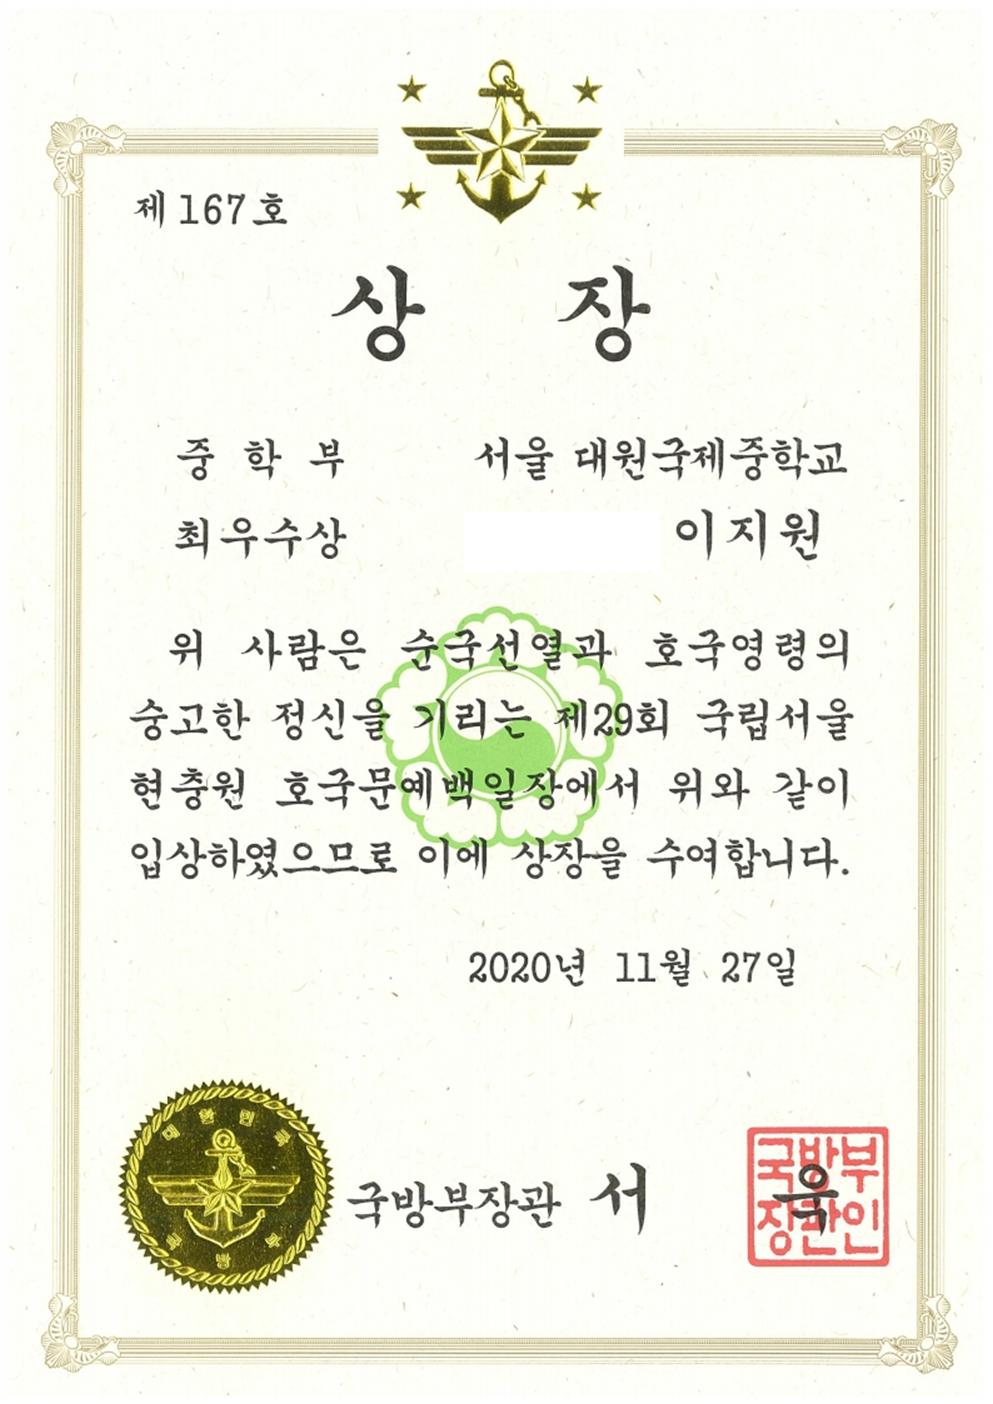 제 167 호
상 장
중 학 부 서울 대원국제중학교
최우수상 이지원
위 사람은 순국선열과 호국영령의
숭고한 정신을 기리는 제29회 국립서울
현충원 호국문예백일장에서 위와 같이
입상하였으므로 이에 상장을 수여합니다.
2020년 11월 27일
대한민국
국방부
국방부장관 서 욱
국방부
장관인